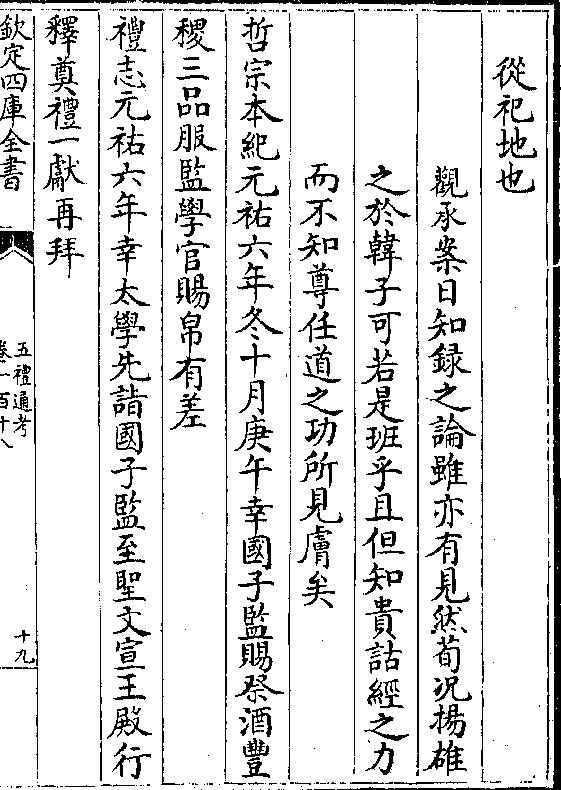 從祀地也
觀承案日知録之論雖亦有見然荀况揚雄
之於韓子可若是班乎且但知貴詁經之力
而不知尊任道之功所見膚矣
哲宗本紀元祐六年冬十月庚午幸國子監賜祭酒豐
稷三品服監學官賜帛有差
禮志元祐六年幸太學先詣國子監至聖文宣王殿行
釋奠禮一獻再拜
欽定四庫全書
五禮通考
卷一百十八
十九